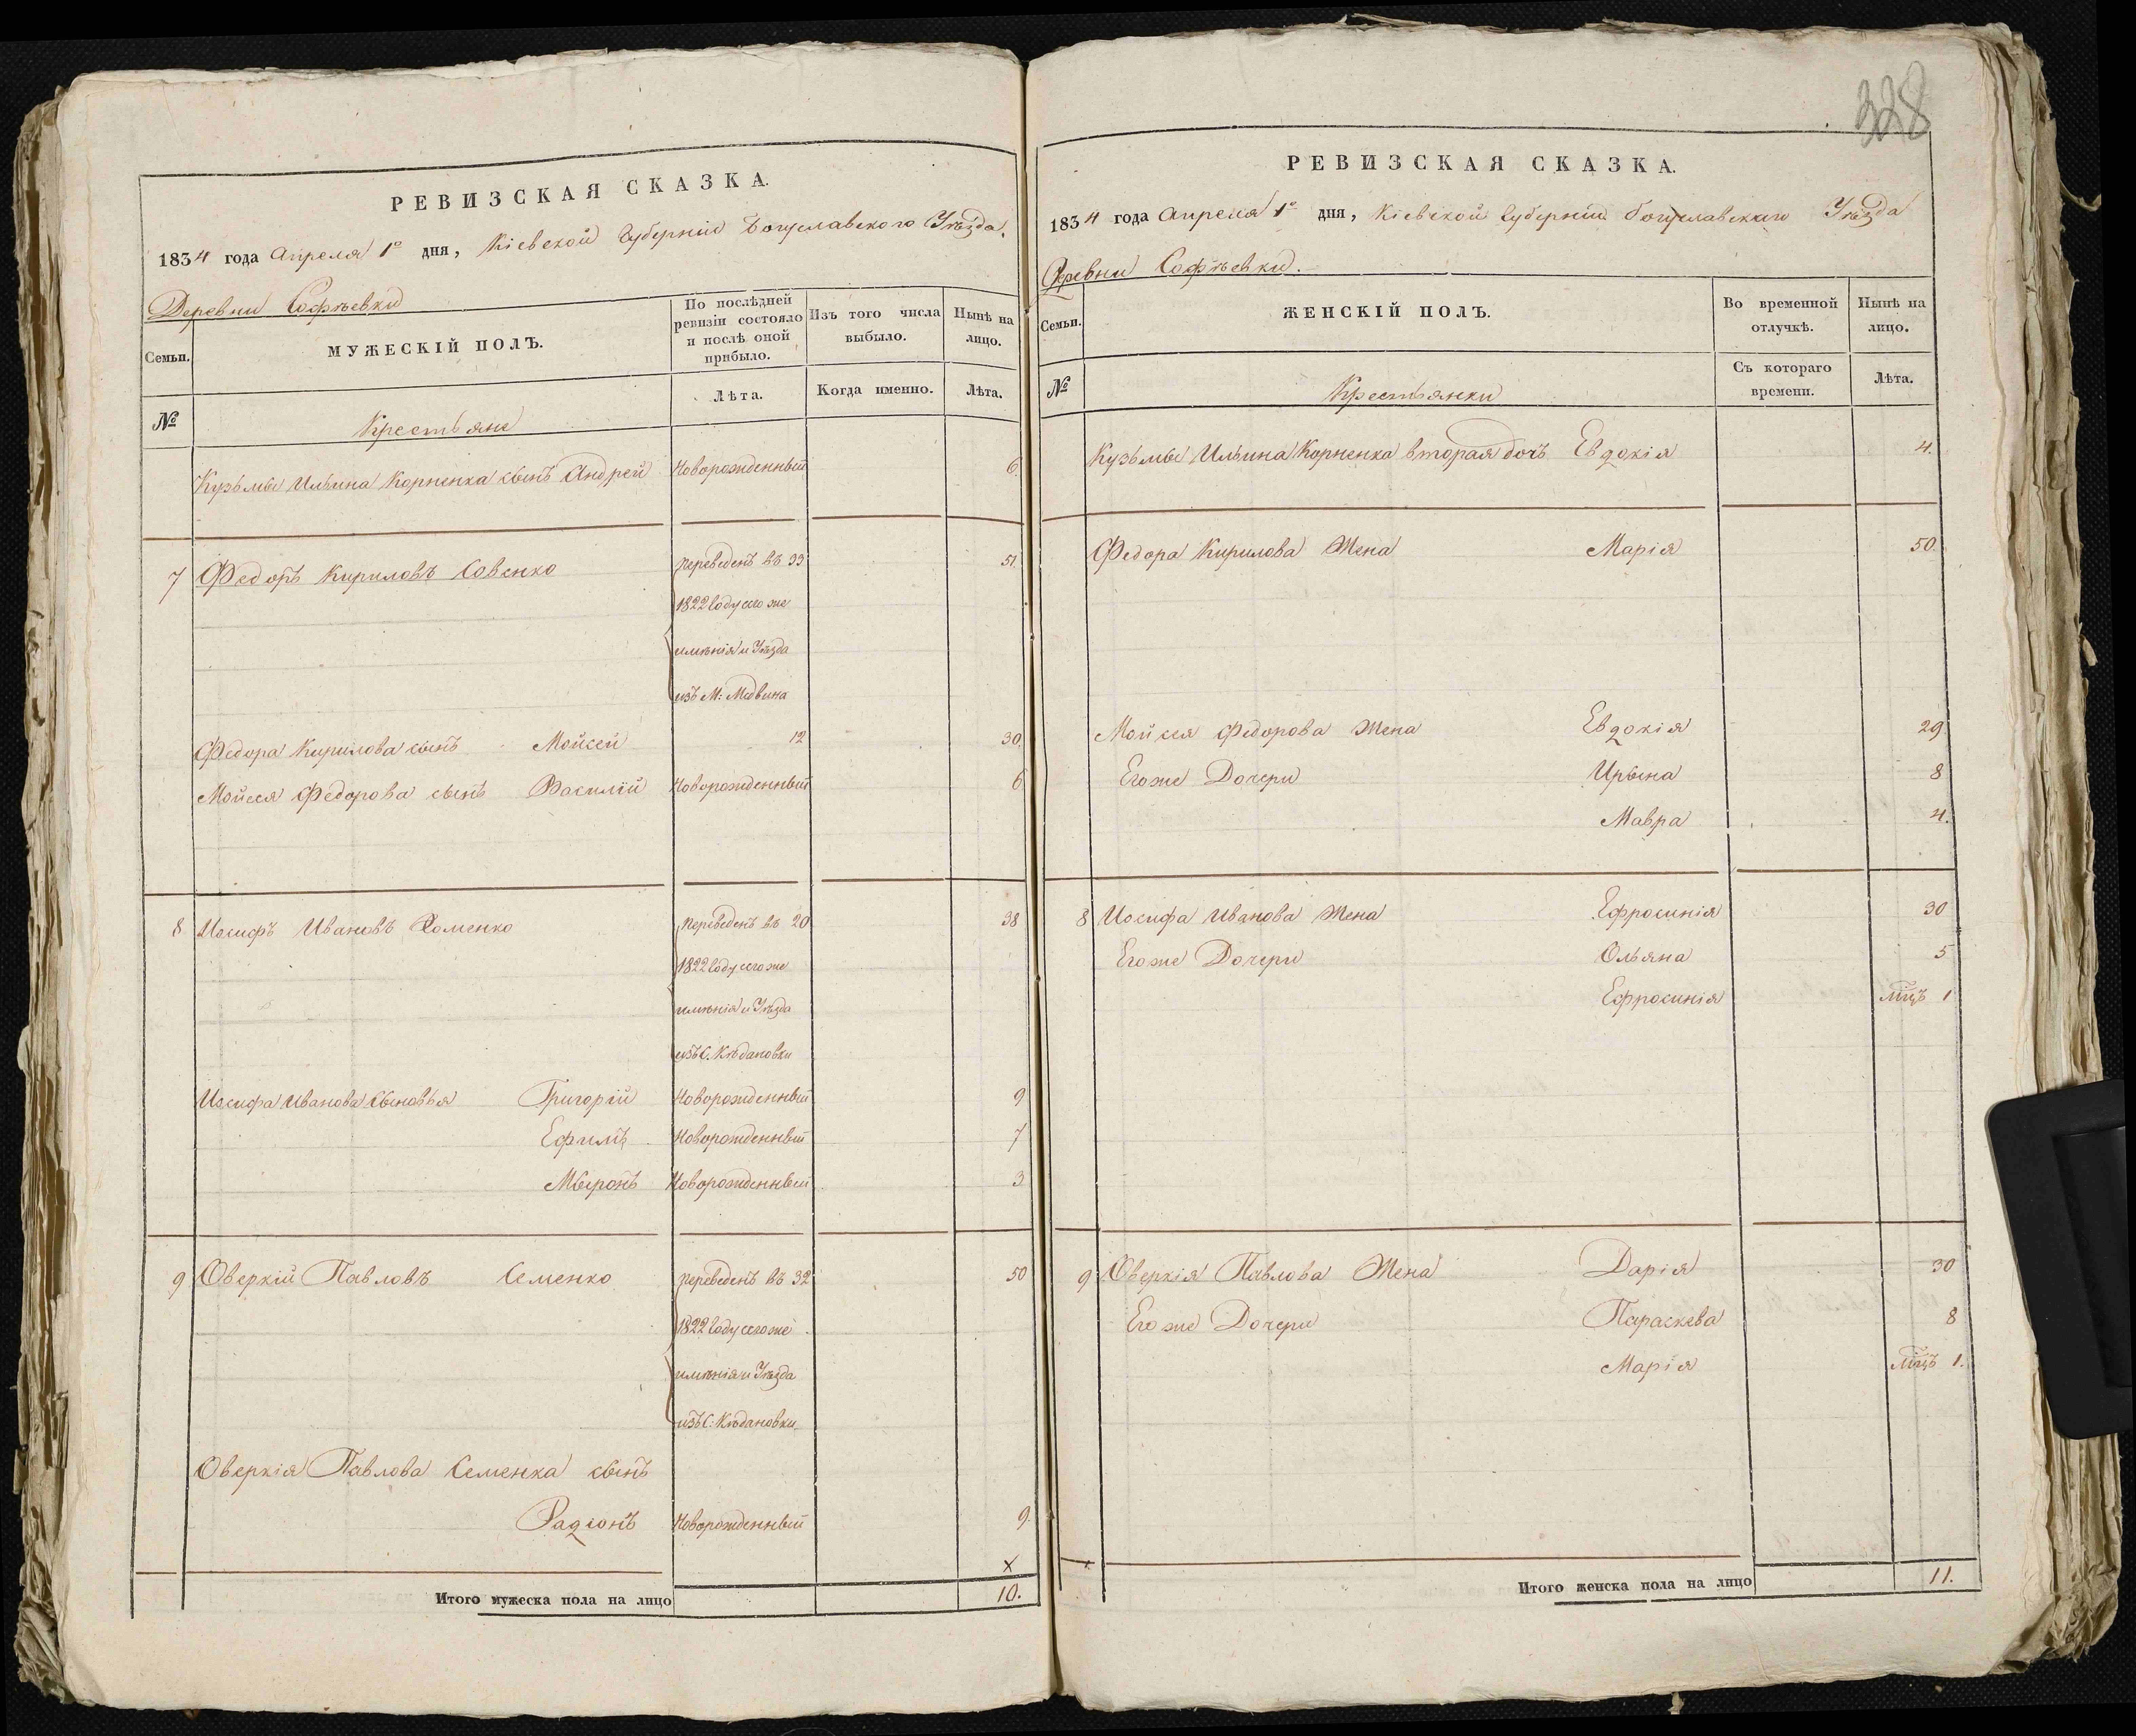 РЕВИЗСКАЯ СКАЗКА.
1834 года Апреля 1º дня, Кіевской Губерніи Богуславского Уѣзда.
Деревни Софѣевки
Семьи.
МУЖЕСКІЙ ПОЛЪ.
По послѣдней ревизіи состояло и послѣ оной прибыло.
Изъ того числа выбыло.
Нынѣ на лицо.
№
Крестьяне
Лѣта.
Когда именно.
Лѣта.
Кузьмы Ильина Корненка сынъ Андрей Новорожденный 6
7 Федоръ Кириловъ Совенко переведенъ въ 33 51.
1822 Году сего же
имѣнія и Уѣзда
изъ М: Медвина
Федора Кирилова сынъ Мойсей 12 30.
Мойсея Федорова сынъ Василій Новорожденный 6
8 Иосифъ Ивановъ Хоменко переведенъ въ 20 38
1822 Году сего же
имѣнія и Уѣзда
изъ С. Кѣдановки
Иосифа Иванова Сыновья Григорій Новорожденный 9
Ефимъ Новорожденный 7
Мыронъ Новорожденный 3
9 Оверкій Павловъ Семенко переведенъ въ 32 50
1822 Году сего же
имѣнія и Уѣзда
изъ С: Кѣдановки
Оверкія Павлова Семенка сынъ
Радіонъ Новорожденный 9.
х
Итого мужеска пола на лицо 10.
328
РЕВИЗСКАЯ СКАЗКА.
1834 года Апреля 1º дня, Кіевской Губерніи Богуславскаго Уѣзда
Деревни Софѣевки.
Семьи.
ЖЕНСКІЙ ПОЛЪ.
Во временной отлучкѣ.
Нынѣ на лицо.
№
Крестьянки
Съ котораго времени.
Лѣта.
Кузьмы Ильина Корненка вторая дочь Евдокія 4.
Федора Кирилова Жена Марія 50.
Мойсея Федорова Жена Евдокія 29.
Его же Дочери Ирына 8
Мавра 4.
8 Иосифа Иванова Жена Ефросинія 30
Его же Дочери Ольяна 5
Ефросинія мцъ 1
9 Оверкія Павлова Жена Дарія 30
Его же Дочери Параскева 8
Марія мцъ 1.
Итого женска пола на лицо 11.